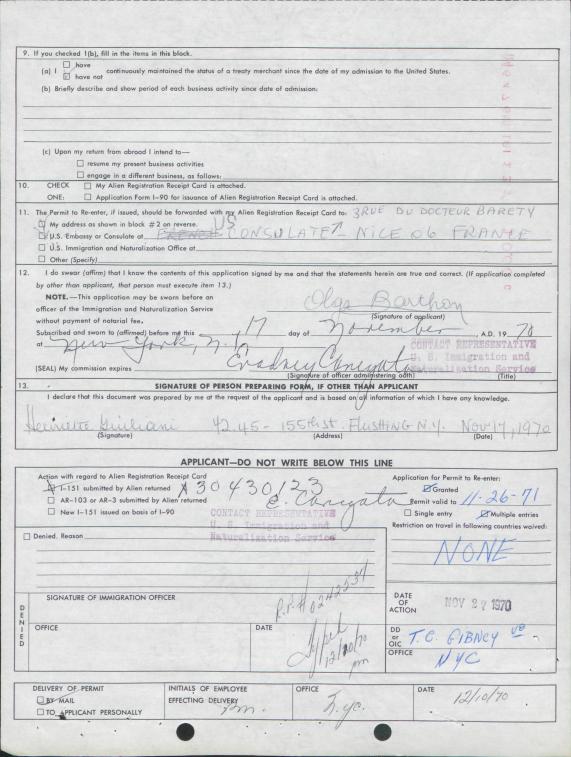 9. If you checked 1(b), fill in the items in this block.
(a) I ☐ have
☑ have not continuously maintained the status of a treaty merchant since the date of my admission to the United States.
(b) Briefly describe and show period of each business activity since date of admission:
(c) Upon my return from abroad I intend to—
☐ resume my present business activities
☐ engage in a different business, as follows:
10. CHECK ☐ My Alien Registration Receipt Card is attached.
ONE: ☐ Application Form I-90 for issuance of Alien Registration Receipt Card is attached.
11. The Permit to Re-enter, if issued, should be forwarded with my Alien Registration Receipt Card to: 3 RUE DU DOCTEUR BARETY
☐ My address as shown in block #2 on reverse. US
☐ U.S. Embassy or Consulate at FRENCH CONSULATE NICE 06 FRANCE
☐ U.S. Immigration and Naturalization Office at
☐ Other (Specify)
12. I do swear (affirm) that I know the contents of this application signed by me and that the statements herein are true and correct. (If application completed
by other than applicant, that person must execute item 13.)
NOTE.—This application may be sworn before an
officer of the Immigration and Naturalization Service
without payment of notarial fee.
Olga Barthon
(Signature of applicant)
Subscribed and sworn to (affirmed) before me this 17 day of November, A.D. 19 70
at New York, N.Y.
CONTACT REPRESENTATIVE
U. S. Immigration and
Naturalization Service
(SEAL) My commission expires
(Signature of officer administering oath) (Title)
13. SIGNATURE OF PERSON PREPARING FORM, IF OTHER THAN APPLICANT
I declare that this document was prepared by me at the request of the applicant and is based on all information of which I have any knowledge.
Henriette Giuliani 42.45 - 155th st. Flushing N.Y. Nov 17, 1970
(Signature) (Address) (Date)
APPLICANT—DO NOT WRITE BELOW THIS LINE
Action with regard to Alien Registration Receipt Card
☒ I-151 submitted by Alien returned A30 430 123
☐ AR-103 or AR-3 submitted by Alien returned
☐ New I-151 issued on basis of I-90
CONTACT REPRESENTATIVE
U. S. Immigration and
Naturalization Service
Application for Permit to Re-enter:
☑ Granted
Permit valid to 11-26-71
☐ Single entry ☑ Multiple entries
Restriction on travel in following countries waived:
NONE
☐ Denied. Reason
DENIED
SIGNATURE OF IMMIGRATION OFFICER
OFFICE DATE
12/10/70
pm
DATE
OF
ACTION NOV 27 1970
DD
or
OIC T.C. GIBNEY
OFFICE NYC
DELIVERY OF PERMIT
☐ BY MAIL
☐ TO APPLICANT PERSONALLY
INITIALS OF EMPLOYEE
EFFECTING DELIVERY pm.
OFFICE
N.Y.C.
DATE
12/10/70